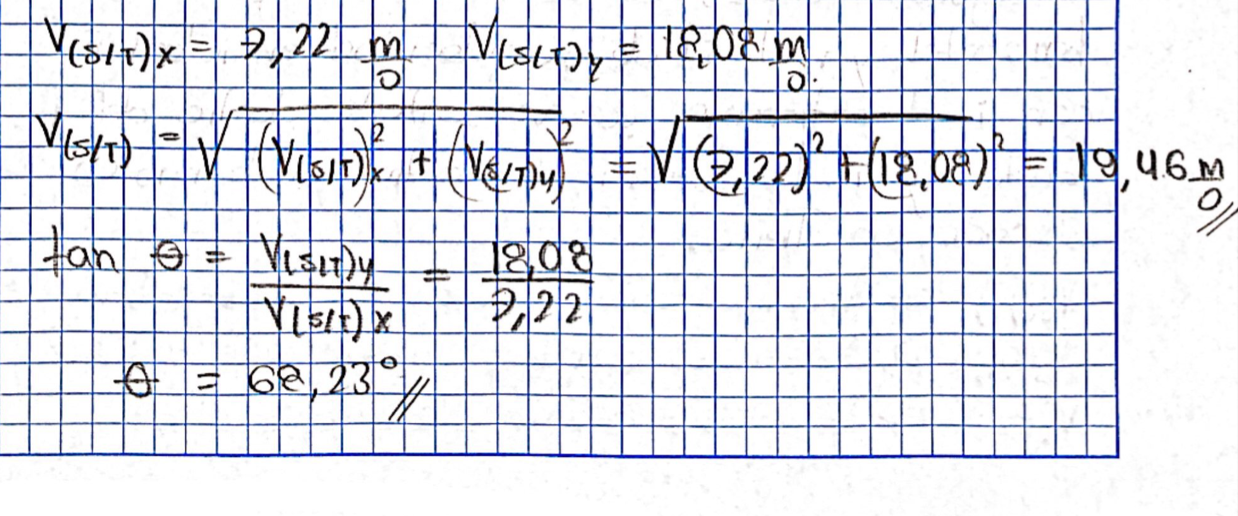 V(S/T)x = 7,22 m/s V(S/T)y = 18,08 m/s.
V(S/T) = √((V(S/T)x)² + (V(S/T)y)²) = √((7,22)² + (18,08)²) = 19,46 m/s //
tan θ = V(S/T)y / V(S/T)x = 18,08 / 7,22
θ = 68,23° //